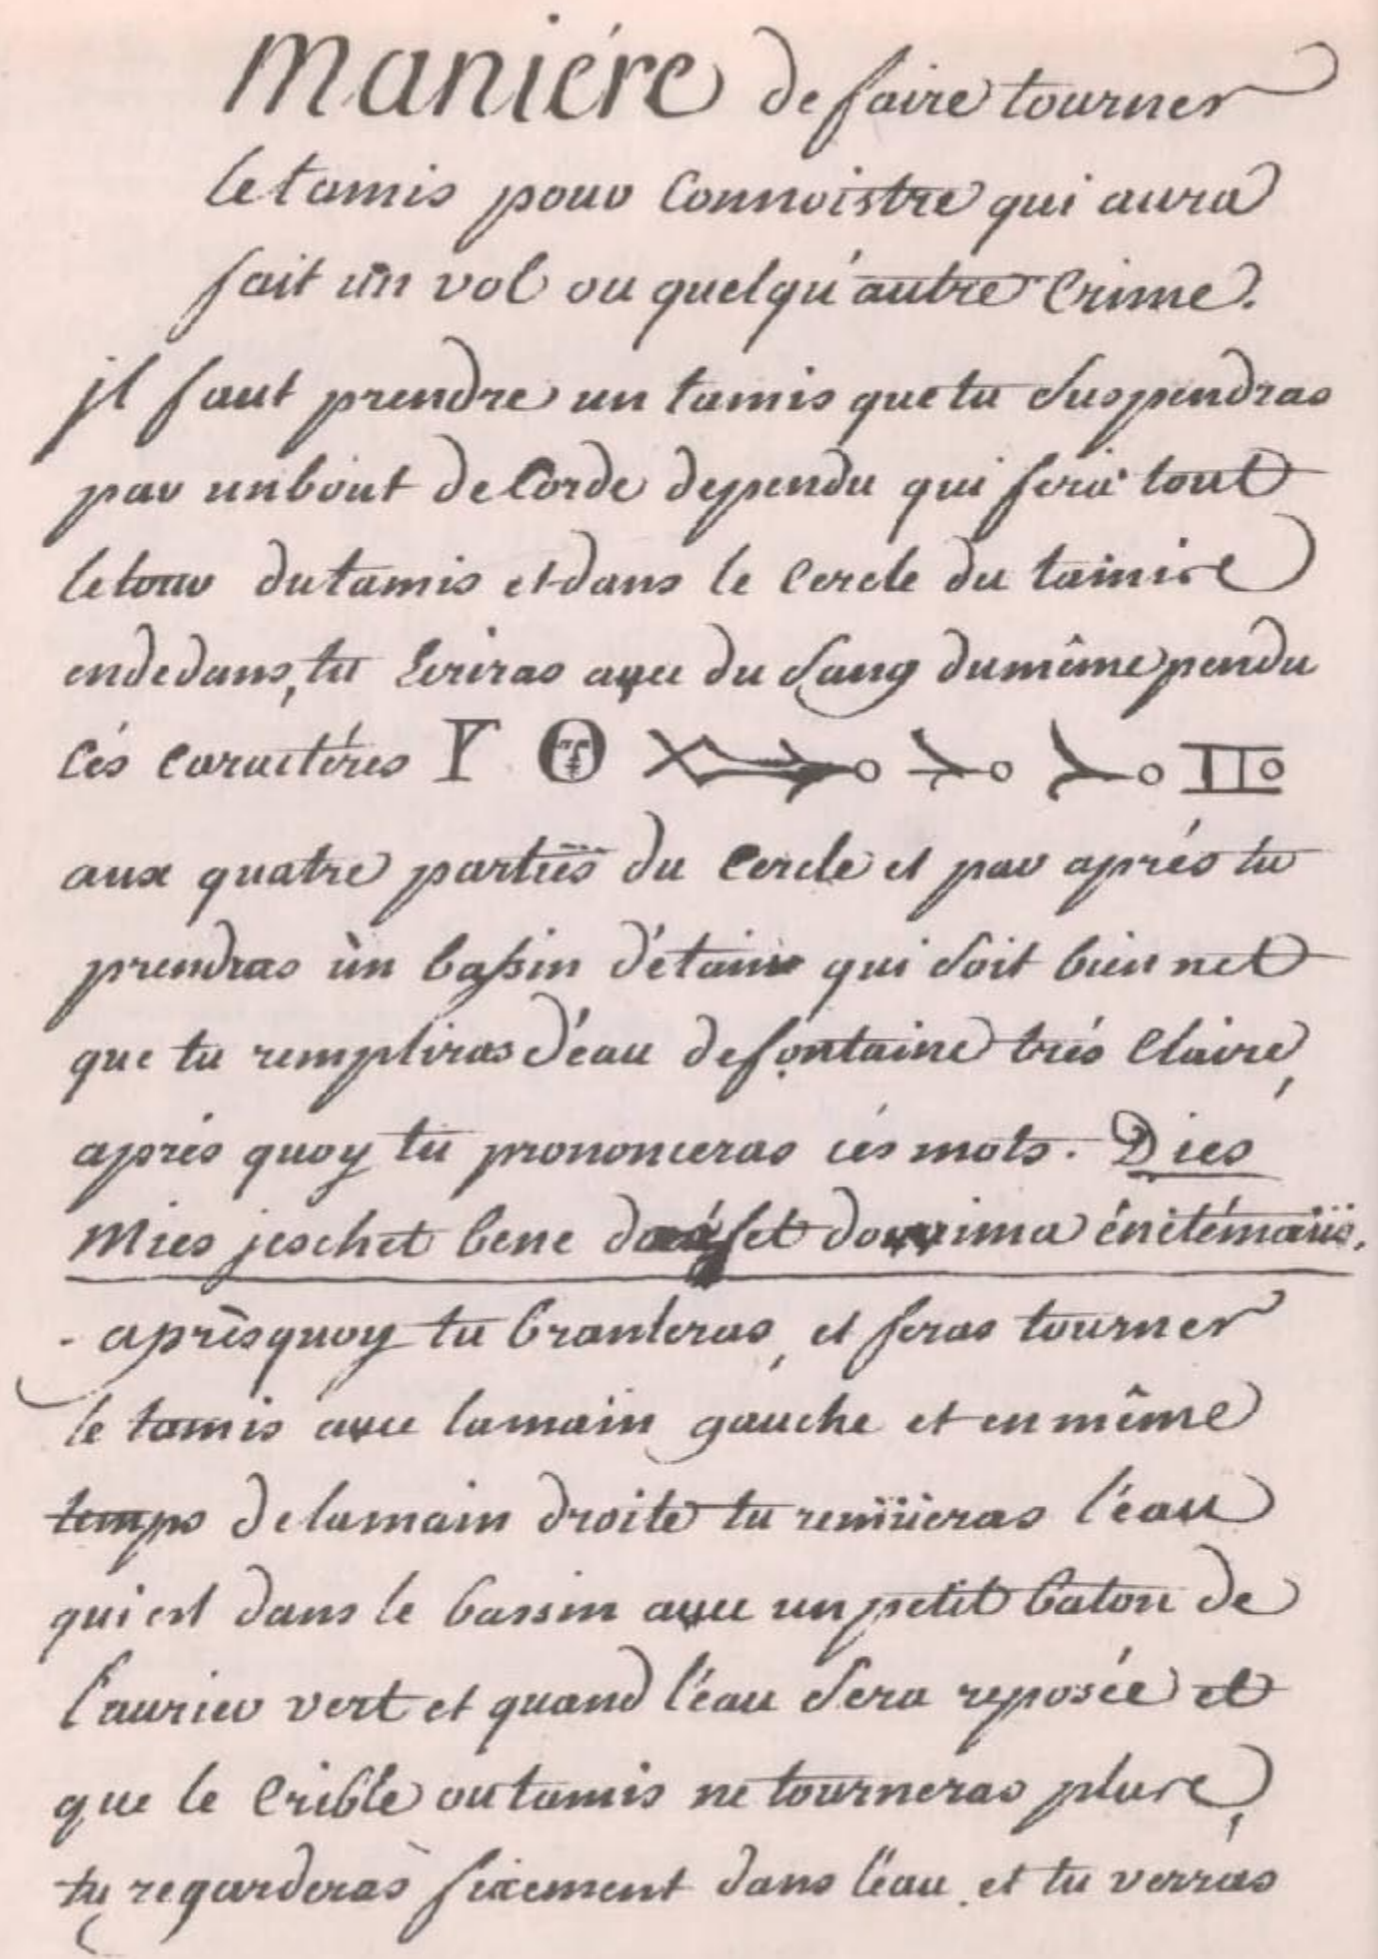 Maniére de faire tourner
le tamis pour connoistre qui aura
fait un vol ou quelqu'autre crime.
jl faut prendre un tamis que tu suspendras
par un bout de corde de pendu qui fera tout
le tour du tamis et dans le cercle du tamis
en dedans, tu écriras avec du sang du même pendu
cés caractéres
aux quatre parties du cercle et par aprés tu
prendras ùn bassin d'étain qui soit bien net
que tu rempliras d'éau de fontaine trés claire,
aprés quoy tu prononceras cés mots. Dies
Mies jeschet bene fet ênitémaüs.
- aprèsquoy tu branleras, et feras tourner
le tamis avec la main gauche et en même
temps de la main droite tu remüeras l'éau
qui est dans le bassin avec un petit baton de
laurier vert et quand l'éau sera reposée et
que le crible ou tamis ne tourneras plus,
tu regarderas fixement dans l'éau et tu verras